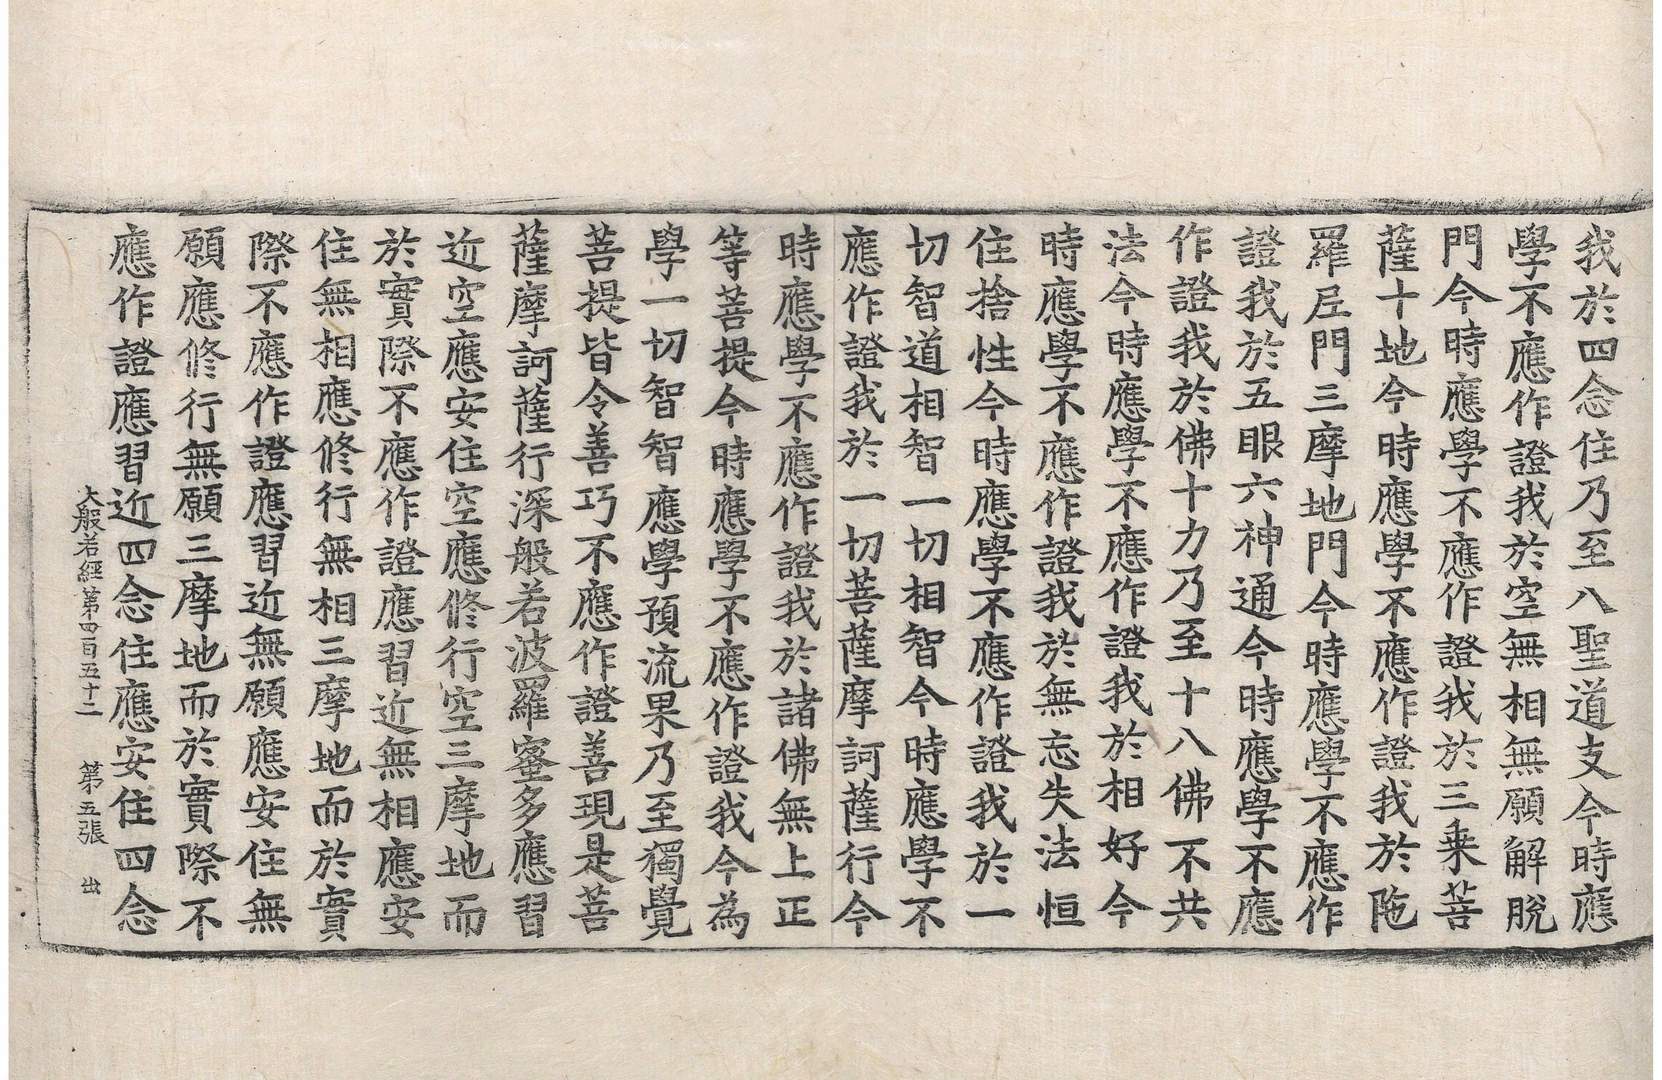 我於四念住乃至八聖道支今時應
學不應作證我於空無相無願解脫
門今時應學不應作證我於三乗菩
薩十地今時應學不應作證我於陁
羅尼門三摩地門今時應學不應作
證我於五眼六神通今時應學不應
作證我於佛十力乃至十八佛不共
法今時應學不應作證我於相好今
時應學不應作證我於無忘失法恒
住捨性今時應學不應作證我於一
切智道相智一切相智今時應學不
應作證我於一切菩薩摩訶薩行今
時應學不應作證我於諸佛無上正
等菩提今時應學不應作證我今為
學一切智智應學預流果乃至獨覺
菩提皆令善巧不應作證善現是菩
薩摩訶薩行深般若波羅蜜多應習
近空應安住空應修行空三摩地而
於實際不應作證應習近無相應安
住無相應修行無相三摩地而於實
際不應作證應習近無願應安住無
願應修行無願三摩地而於實際不
應作證應習近四念住應安住四念
大般若經第四百五十二 第五張 出